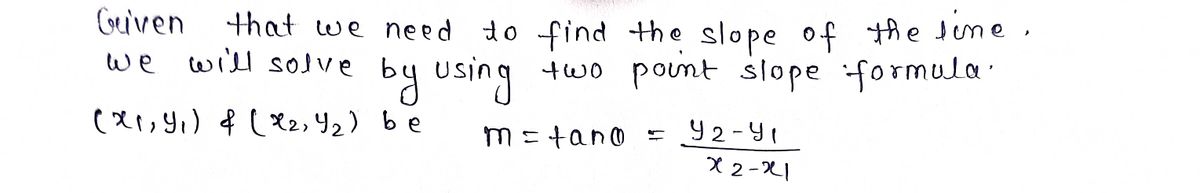 Given that we need to find the slope of the line.
we will solve by using two point slope formula.
(x1, y1) & (x2, y2) be m = tanθ = y2-y1 / x2-x1